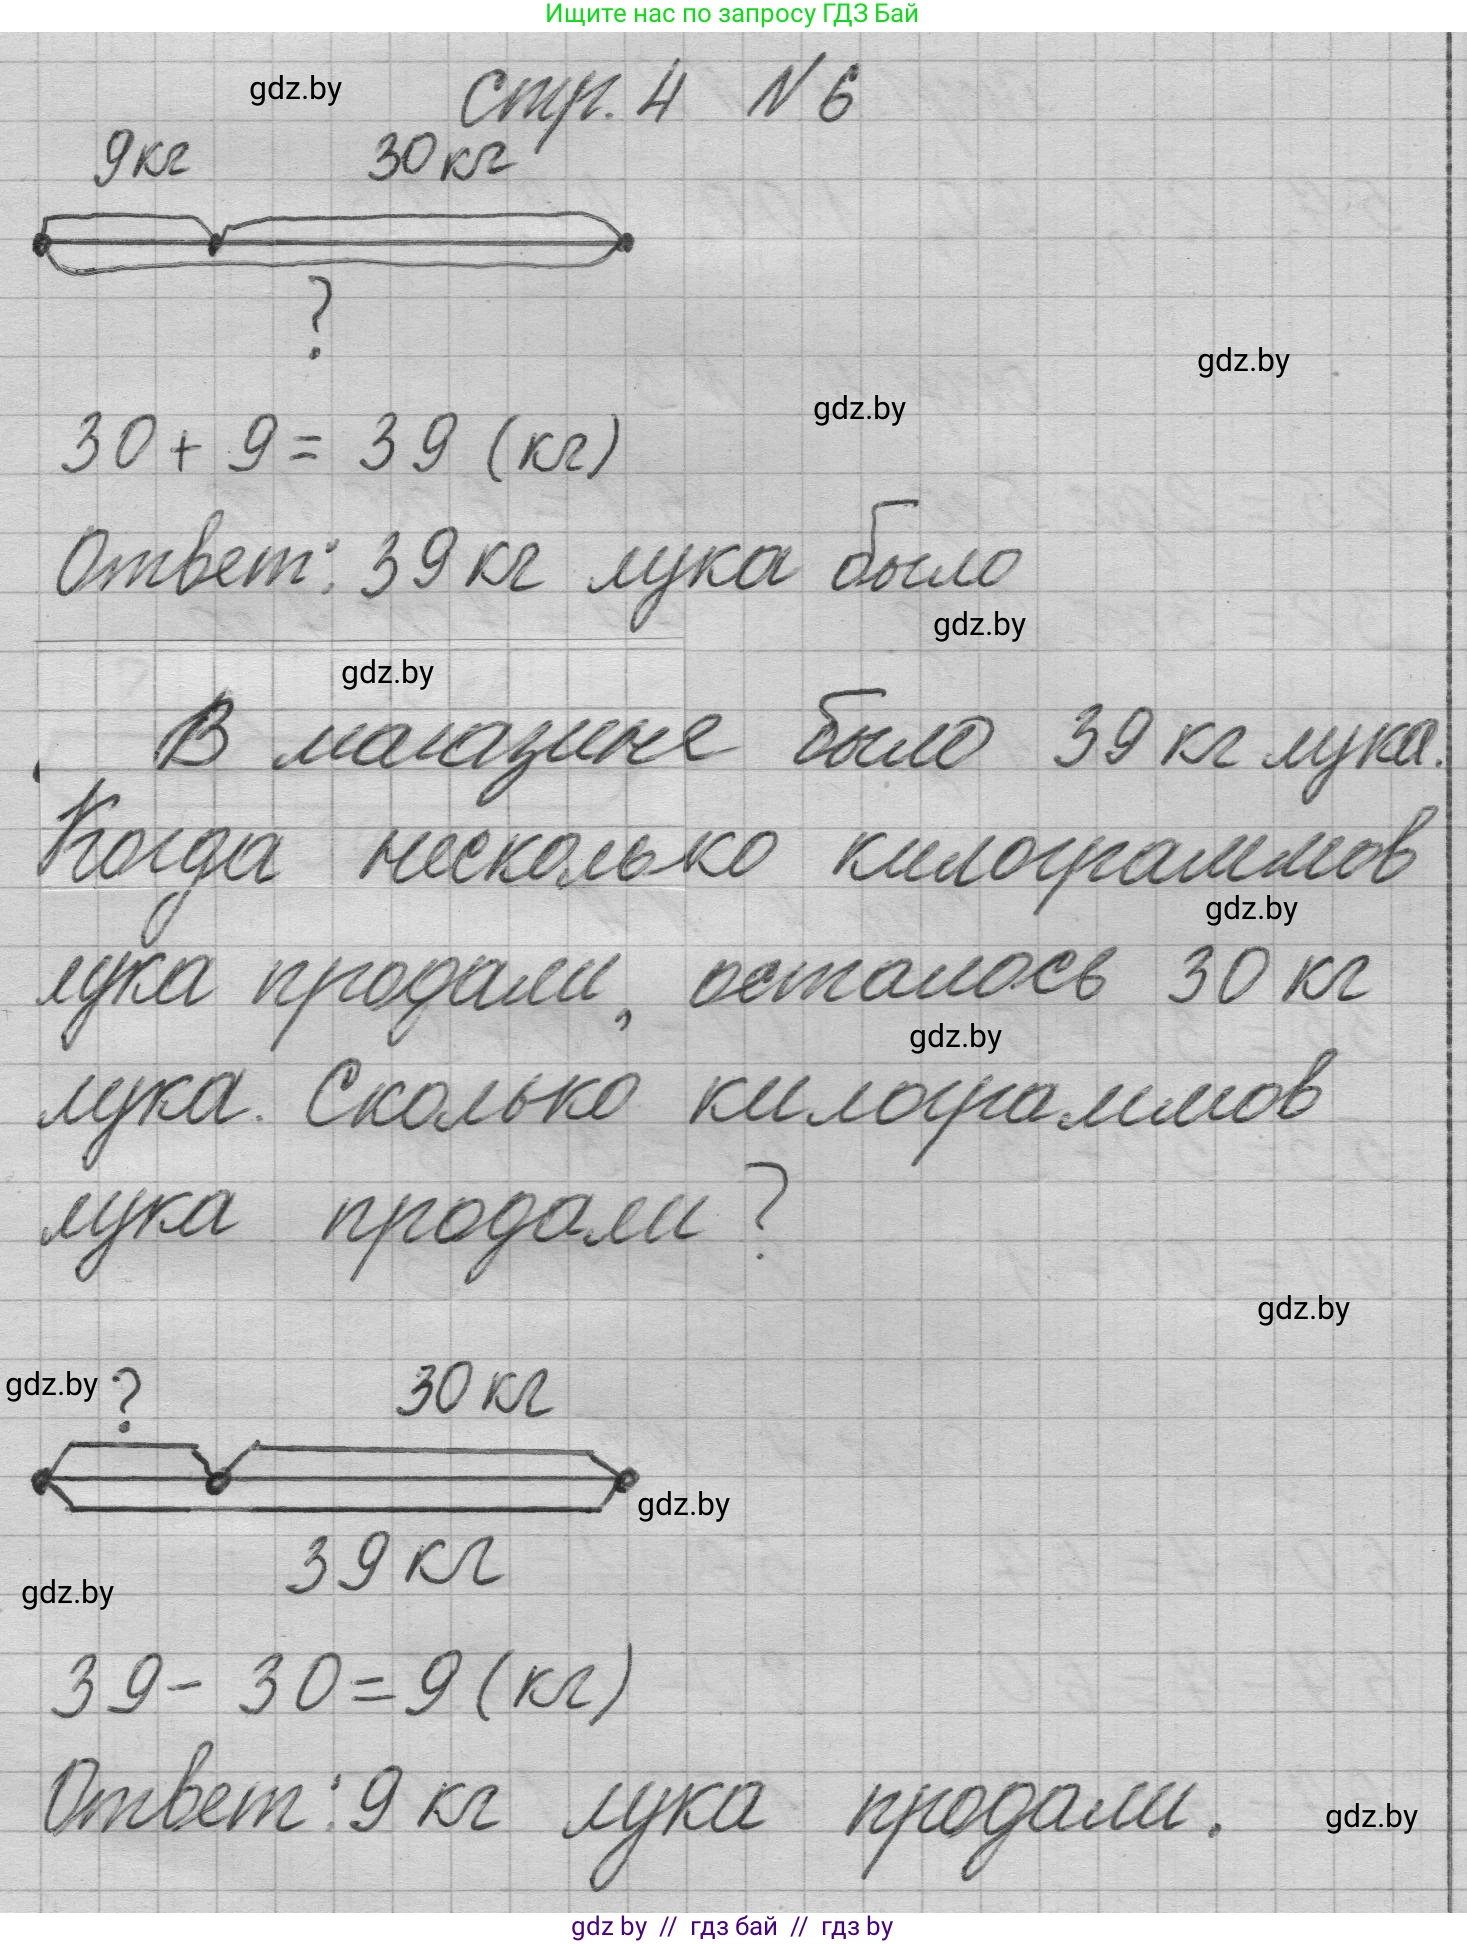 Ищите нас по запросу ГДЗ Бай
gdz.by
стр. 4 № 6
9 кг 30 кг
?
gdz.by
gdz.by
30 + 9 = 39 (кг)
Ответ: 39 кг лука было
gdz.by
gdz.by
В магазине было 39 кг лука.
Когда несколько килограммов
gdz.by
лука продали, осталось 30 кг
gdz.by
лука. Сколько килограммов
лука продали?
gdz.by
gdz.by ? 30 кг
gdz.by
39 кг
gdz.by
39 - 30 = 9 (кг)
Ответ: 9 кг лука продали.
gdz.by
gdz by // гдз бай // гдз by